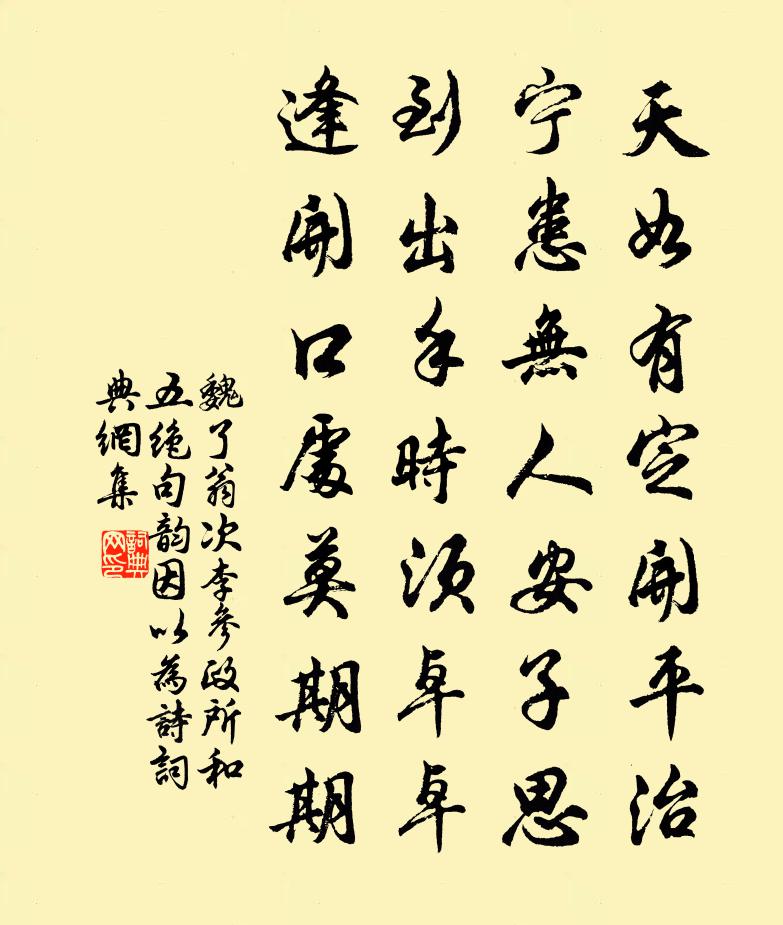 天如有定開平治
宁患無人安子思
到出手時須卓卓
逢開口處莫期期
魏了翁次李參政所和
五绝句韵因以為詩詞
典網集
詞典
网印